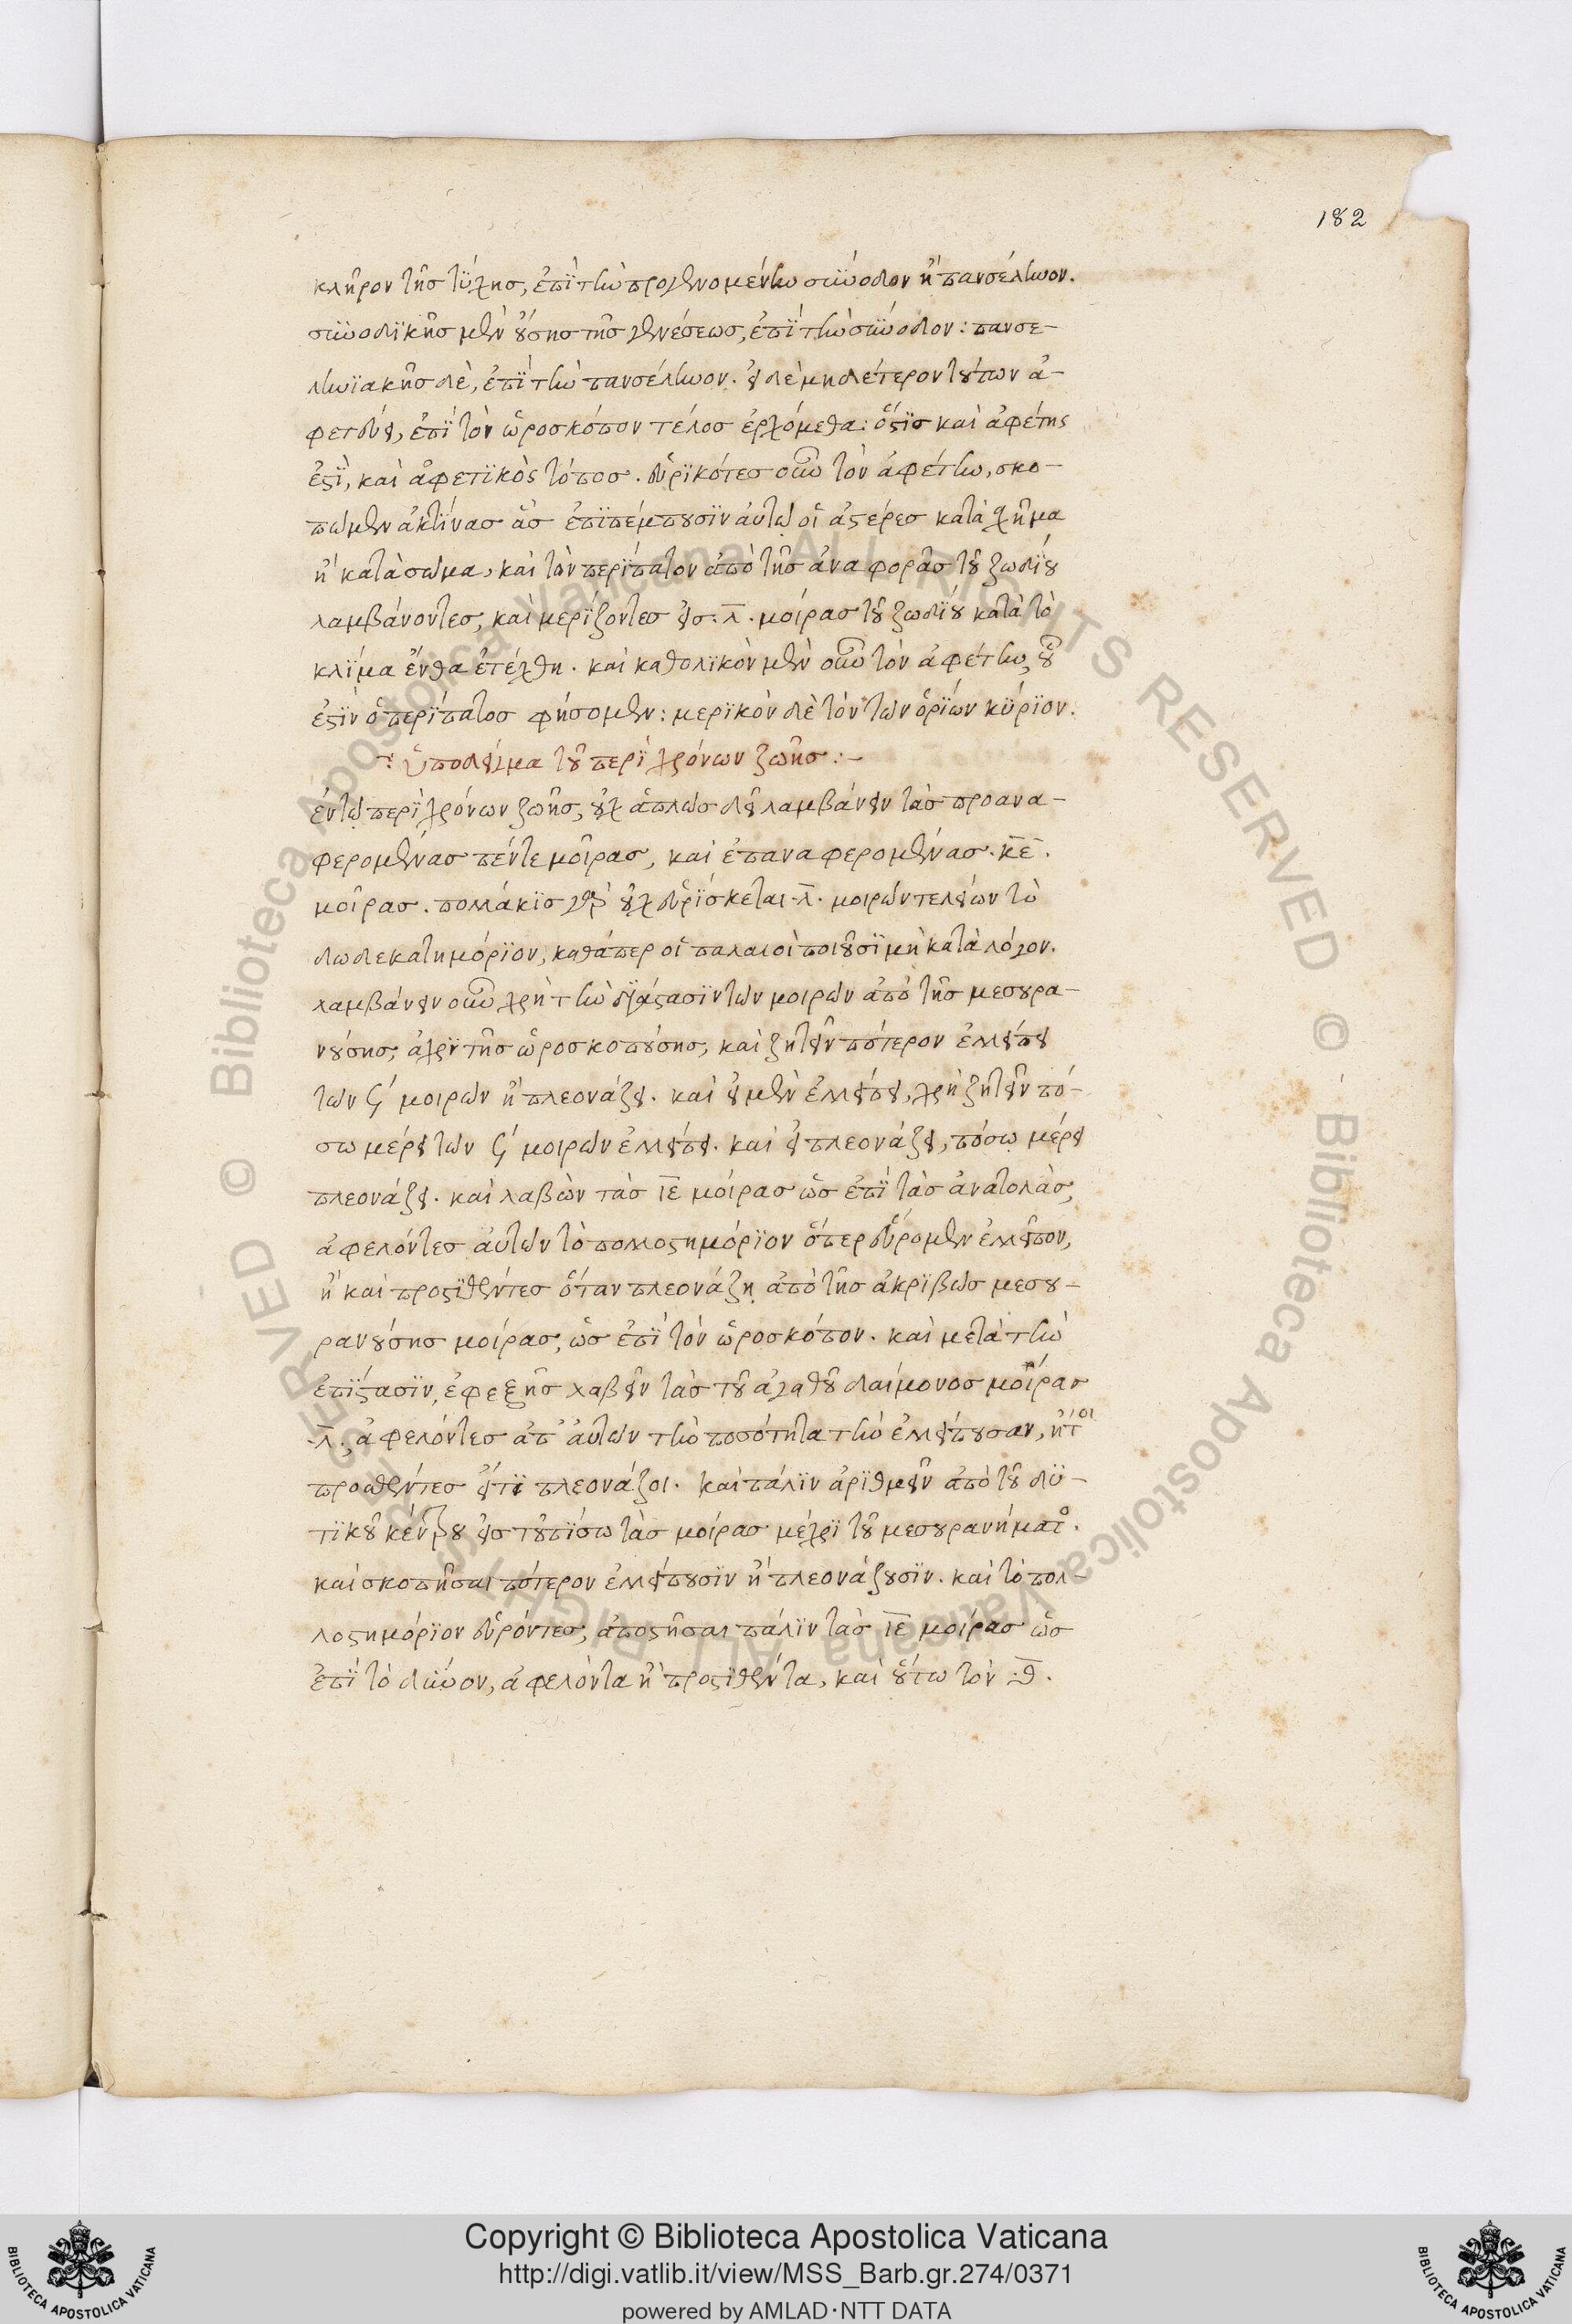 182
κλῆρον τῆς τύχης, ἐπὶ τὴν προγενομένην σύνοδον ἢ πανσέληνον.
συνοδικῆς μὲν οὔσης τῆς γενέσεως, ἐπὶ τὴν σύνοδον: πανσε-
ληνιακῆς δὲ, ἐπὶ τὴν πανσέληνον. εἰ δὲ μηδέτερον τούτων ἀ-
φετεύει, ἐπὶ τὸν ὡροσκόπον τέλος ἐρχόμεθα: ὅστις καὶ ἀφέτης
ἐστὶ, καὶ ἀφετικὸς τόπος. εὑρικότες οὖν τὸν ἀφέτην, σκο-
πῶμεν ἀκτίνας ἃς ἐπιπέμπουσιν αὐτῷ οἱ ἀστέρες κατὰ σχῆμα
ἢ κατὰ σῶμα, καὶ τὸν περίπατον ἀπὸ τῆς ἀναφορᾶς τοῦ ζωδίου
λαμβάνοντες, καὶ μερίζοντες εἰς .λ. μοίρας τοῦ ζωδίου κατὰ τὸ
κλίμα ἔνθα ἐτέχθη. καὶ καθολικὸν μὲν οὖν τὸν ἀφέτην, οὗ
ἐστὶν ὁ περίπατος φήσομεν: μερικὸν δὲ τὸν τῶν ὁρίων κύριον.
ὑπόδειγμα τοῦ περὶ χρόνων ζωῆς :-
ἐν τῷ περὶ χρόνων ζωῆς, οὐχ ἁπλῶς δεῖ λαμβάνειν τὰς προανα-
φερομένας πέντε μοῖρας, καὶ ἐπαναφερομένας .κε.
μοῖρας. πολλάκις γὰρ οὐχ εὑρίσκεται .λ. μοιρῶν τελείων τὸ
δωδεκατημόριον, καθάπερ οἱ παλαιοὶ ποιοῦσι μὴ κατὰ λόγον.
λαμβάνειν οὖν χρὴ τὴν διάστασιν τῶν μοιρῶν ἀπὸ τῆς μεσουρα-
νούσης, ἄχρι τῆς ὡροσκοπούσης, καὶ ζητεῖν πότερον ἐλλείπει
τῶν ϟ μοιρῶν ἢ πλεονάζει. καὶ εἰ μὲν ἐλλείπει, χρὴ ζητεῖν πό-
σω μέρει τῶν ϟ μοιρῶν ἐλλείπει. καὶ εἰ πλεονάζει, πόσῳ μέρει
πλεονάζει. καὶ λαβὼν τὰς ιε μοίρας ὡς ἐπὶ τὰς ἀνατολὰς,
ἀφελόντες αὐτῶν τὸ πολλοστημόριον ὅπερ εὕρομεν ἐλλεῖπον,
ἢ καὶ προστιθέντες ὅταν πλεονάζῃ ἀπὸ τῆς ἀκριβῶς μεσου-
ρανούσης μοίρας, ὡς ἐπὶ τὸν ὡροσκόπον. καὶ μετὰ τὴν
ἐπίστασιν, ἐφεξῆς λαβεῖν τὰς τοῦ ἀγαθοῦ δαίμονος μοίρας
.λ., ἀφελόντες ἀπ' αὐτῶν τὴν ποσότητα τὴν ἐλλείπουσαν, ἤτοι
προσθέντες εἴ τι πλεονάζοι. καὶ πάλιν ἀριθμεῖν ἀπὸ τοῦ δυ-
τικοῦ κέντρου εἰς τοὐπίσω τὰς μοίρας μέχρι τοῦ μεσουρανήματος.
καὶ σκοπῆσαι πότερον ἐλλείπουσιν ἢ πλεονάζουσιν. καὶ τὸ πολ-
λοστημόριον εὑρόντες, ἀποστῆσαι πάλιν τὰς ιε μοίρας ὡς
ἐπὶ τὸ δῦνον, ἀφελόντα ἢ προστιθέντα, καὶ οὕτω τὸν .θ.
Copyright © Biblioteca Apostolica Vaticana
http://digi.vatlib.it/view/MSS_Barb.gr.274/0371
powered by AMLAD·NTT DATA
BIBLIOTECA APOSTOLICA VATICANA
BIBLIOTECA APOSTOLICA VATICANA
© Biblioteca Apostolica Vaticana ALL RIGHTS RESERVED © - Biblioteca Apostolica Vaticana ALL RIGHTS RESERVED